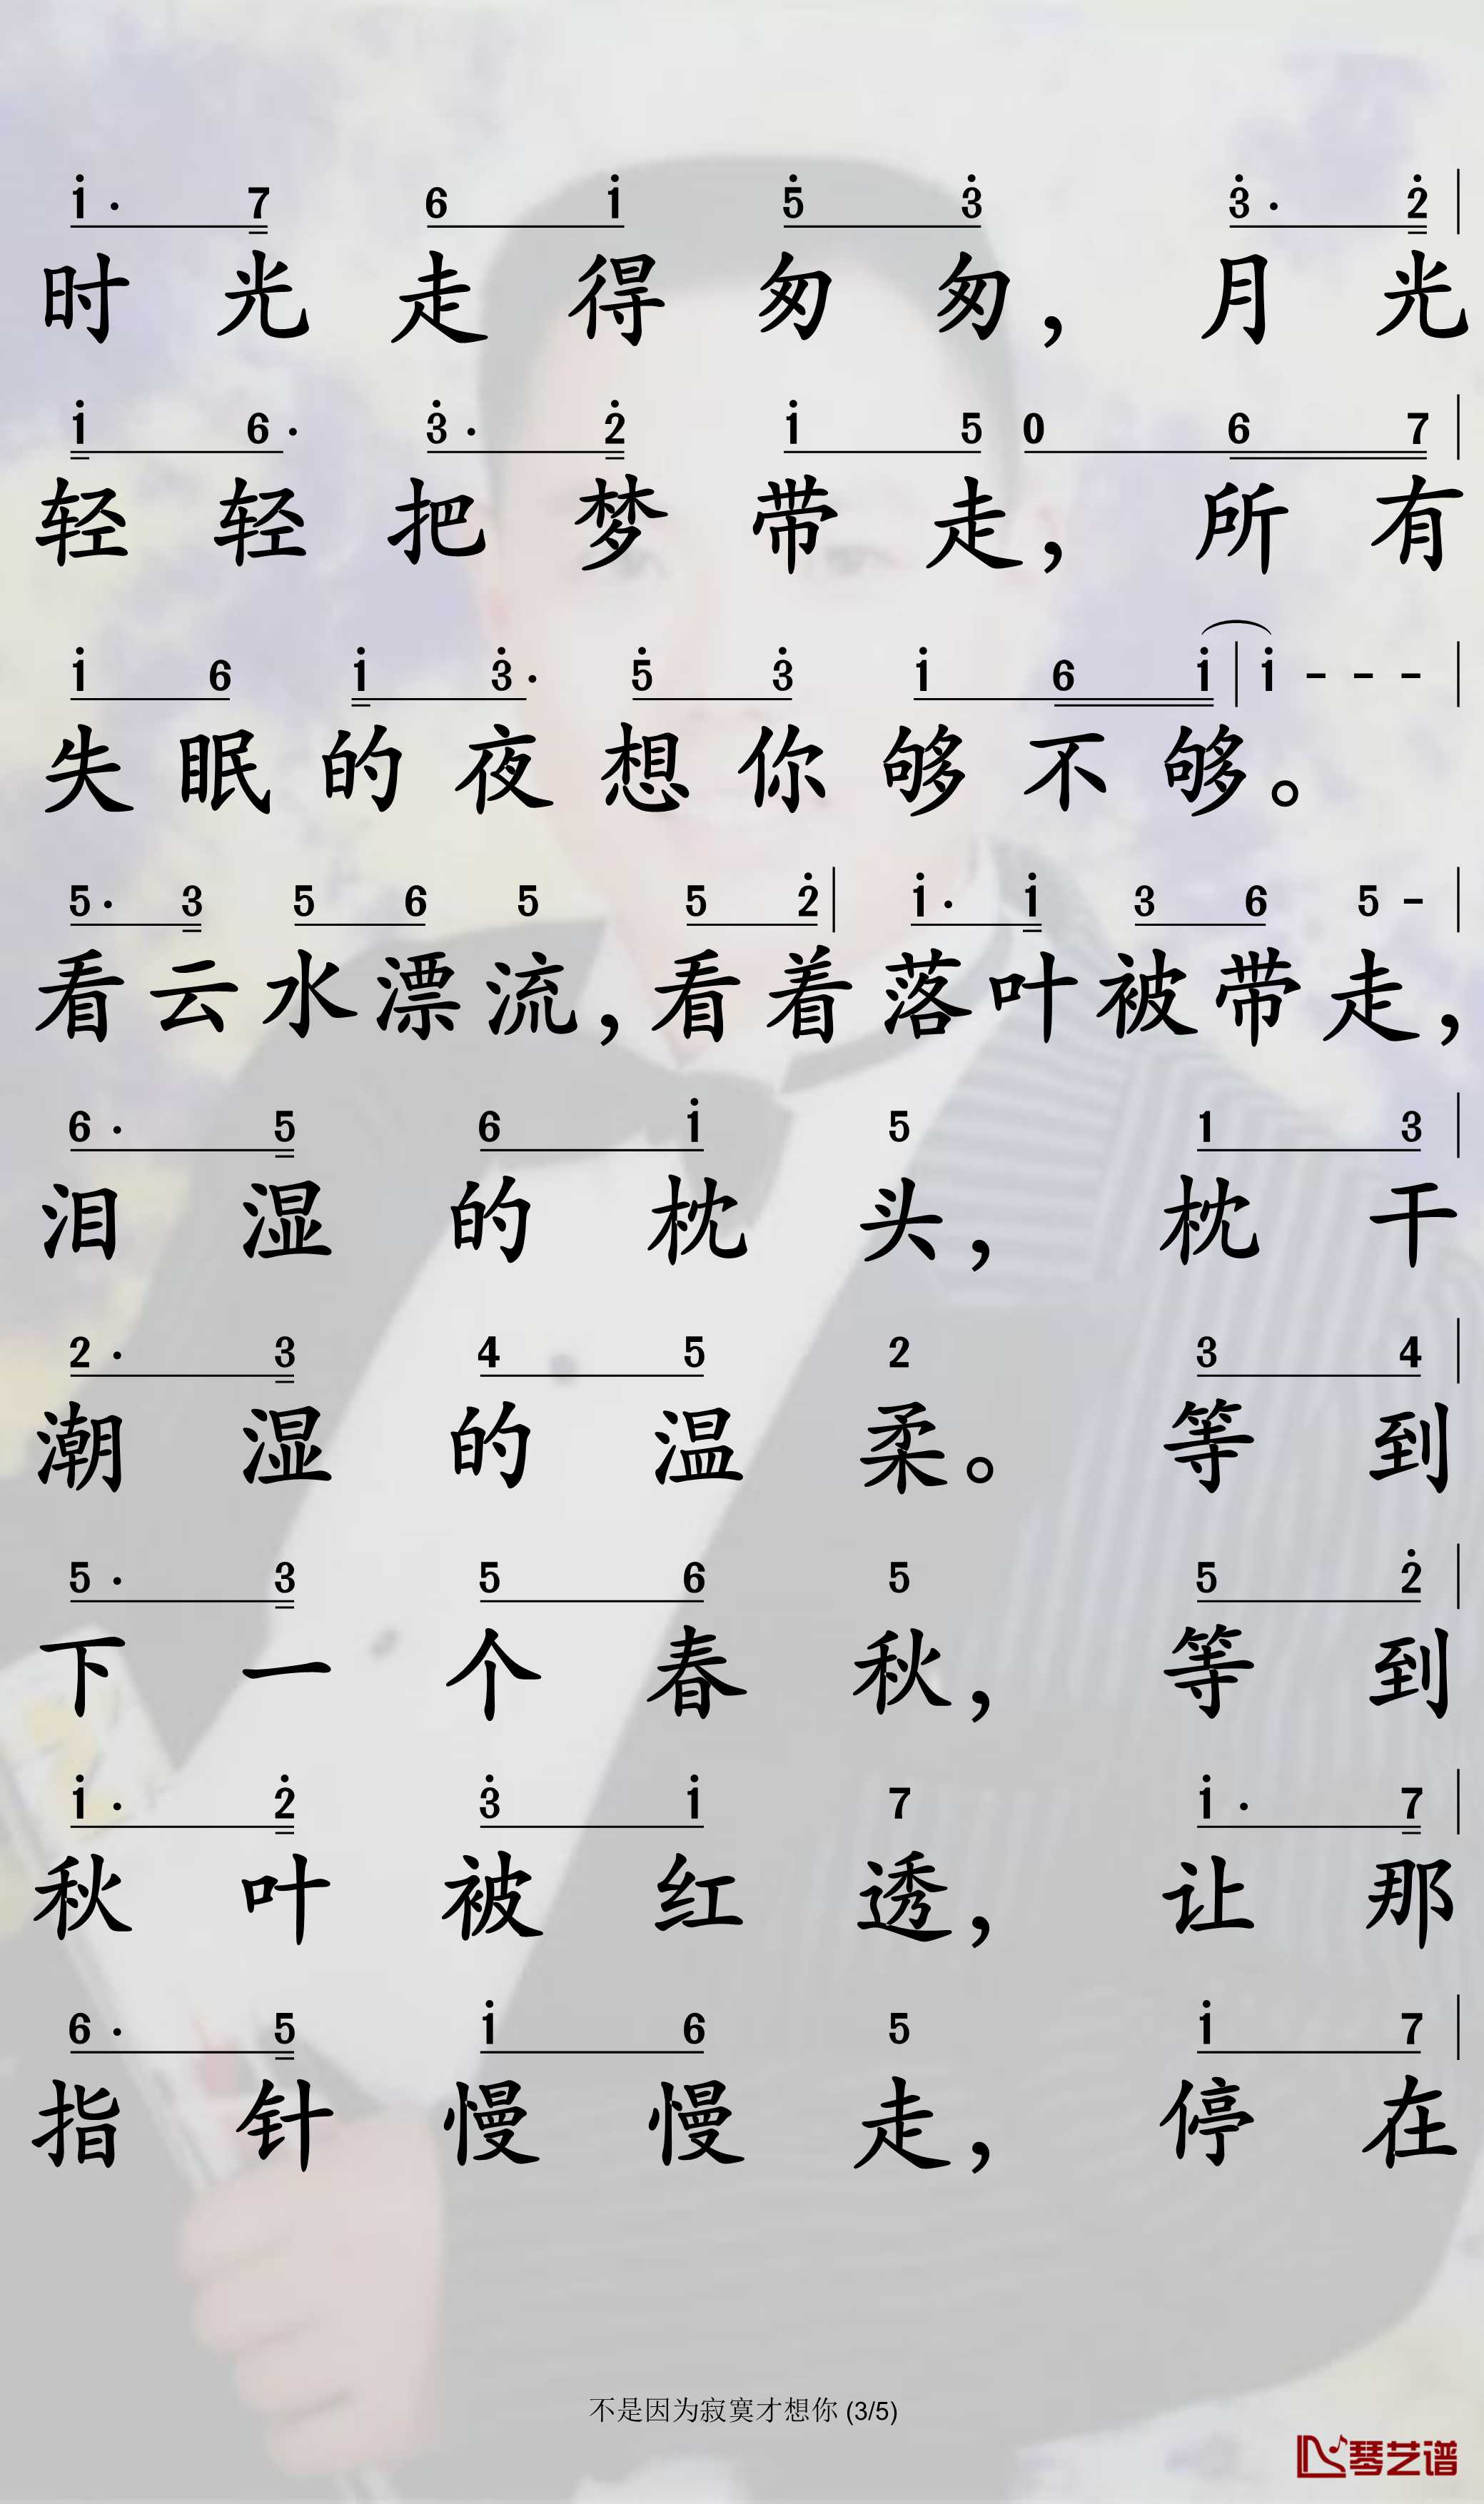 i· 7 6 i 5 3 3· 2
时光走得匆匆，月光
i 6· 3· 2 i 5 0 6 7
轻轻把梦带走，所有
i 6 i 3· 5 3 i 6 i i - - -
失眠的夜想你够不够。
5· 3 5 6 5 5 2 i· i 3 6 5 -
看云水漂流，看着落叶被带走，
6· 5 6 i 5 1 3
泪湿的枕头，枕干
2· 3 4 5 2 3 4
潮湿的温柔。等到
5· 3 5 6 5 5 2
下一个春秋，等到
i· 2 3 i 7 i· 7
秋叶被红透，让那
6· 5 i 6 5 i 7
指针慢慢走，停在
不是因为寂寞才想你 (3/5)
琴艺谱